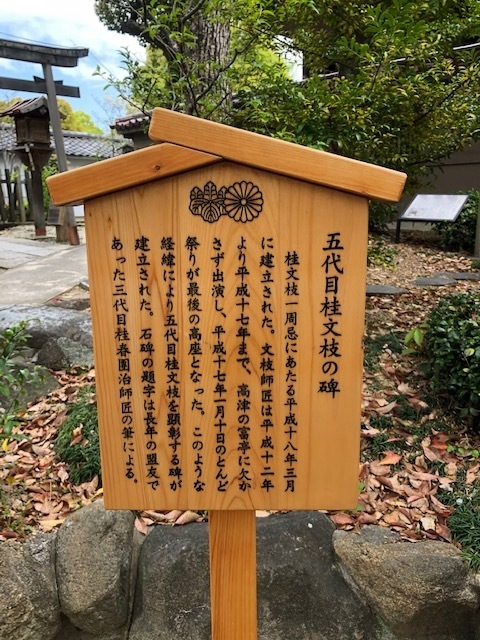 五代目桂文枝の碑
桂文枝一周忌にあたる平成十八年三月
に建立された。文枝師匠は平成十二年
より平成十七年まで、高津の富亭に欠か
さず出演し、平成十七年一月十日のとんど
祭りが最後の高座となった。このような
経緯により五代目桂文枝を顕彰する碑が
建立された。石碑の題字は長年の盟友で
あった三代目桂春団治師匠の筆による。